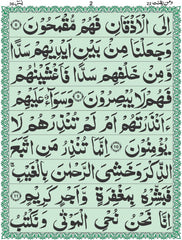 2
إِلَى الْأَذْقَانِ فَهُمْ مُقْمَحُونَ ۝
وَجَعَلْنَا مِنْ بَيْنِ أَيْدِيهِمْ سَدًّا
وَمِنْ خَلْفِهِمْ سَدًّا فَأَغْشَيْنٰهُمْ
فَهُمْ لَا يُبْصِرُونَ ۝ وَسَوَآءٌ عَلَيْهِمْ
ءَأَنْذَرْتَهُمْ أَمْ لَمْ تُنْذِرْهُمْ لَا
يُؤْمِنُونَ ۝ إِنَّمَا تُنْذِرُ مَنِ اتَّبَعَ
الذِّكْرَ وَخَشِيَ الرَّحْمٰنَ بِالْغَيْبِ
فَبَشِّرْهُ بِمَغْفِرَةٍ وَّأَجْرٍ كَرِيمٍ ۝
إِنَّا نَحْنُ نُحْيِ الْمَوْتٰى وَنَكْتُبُ